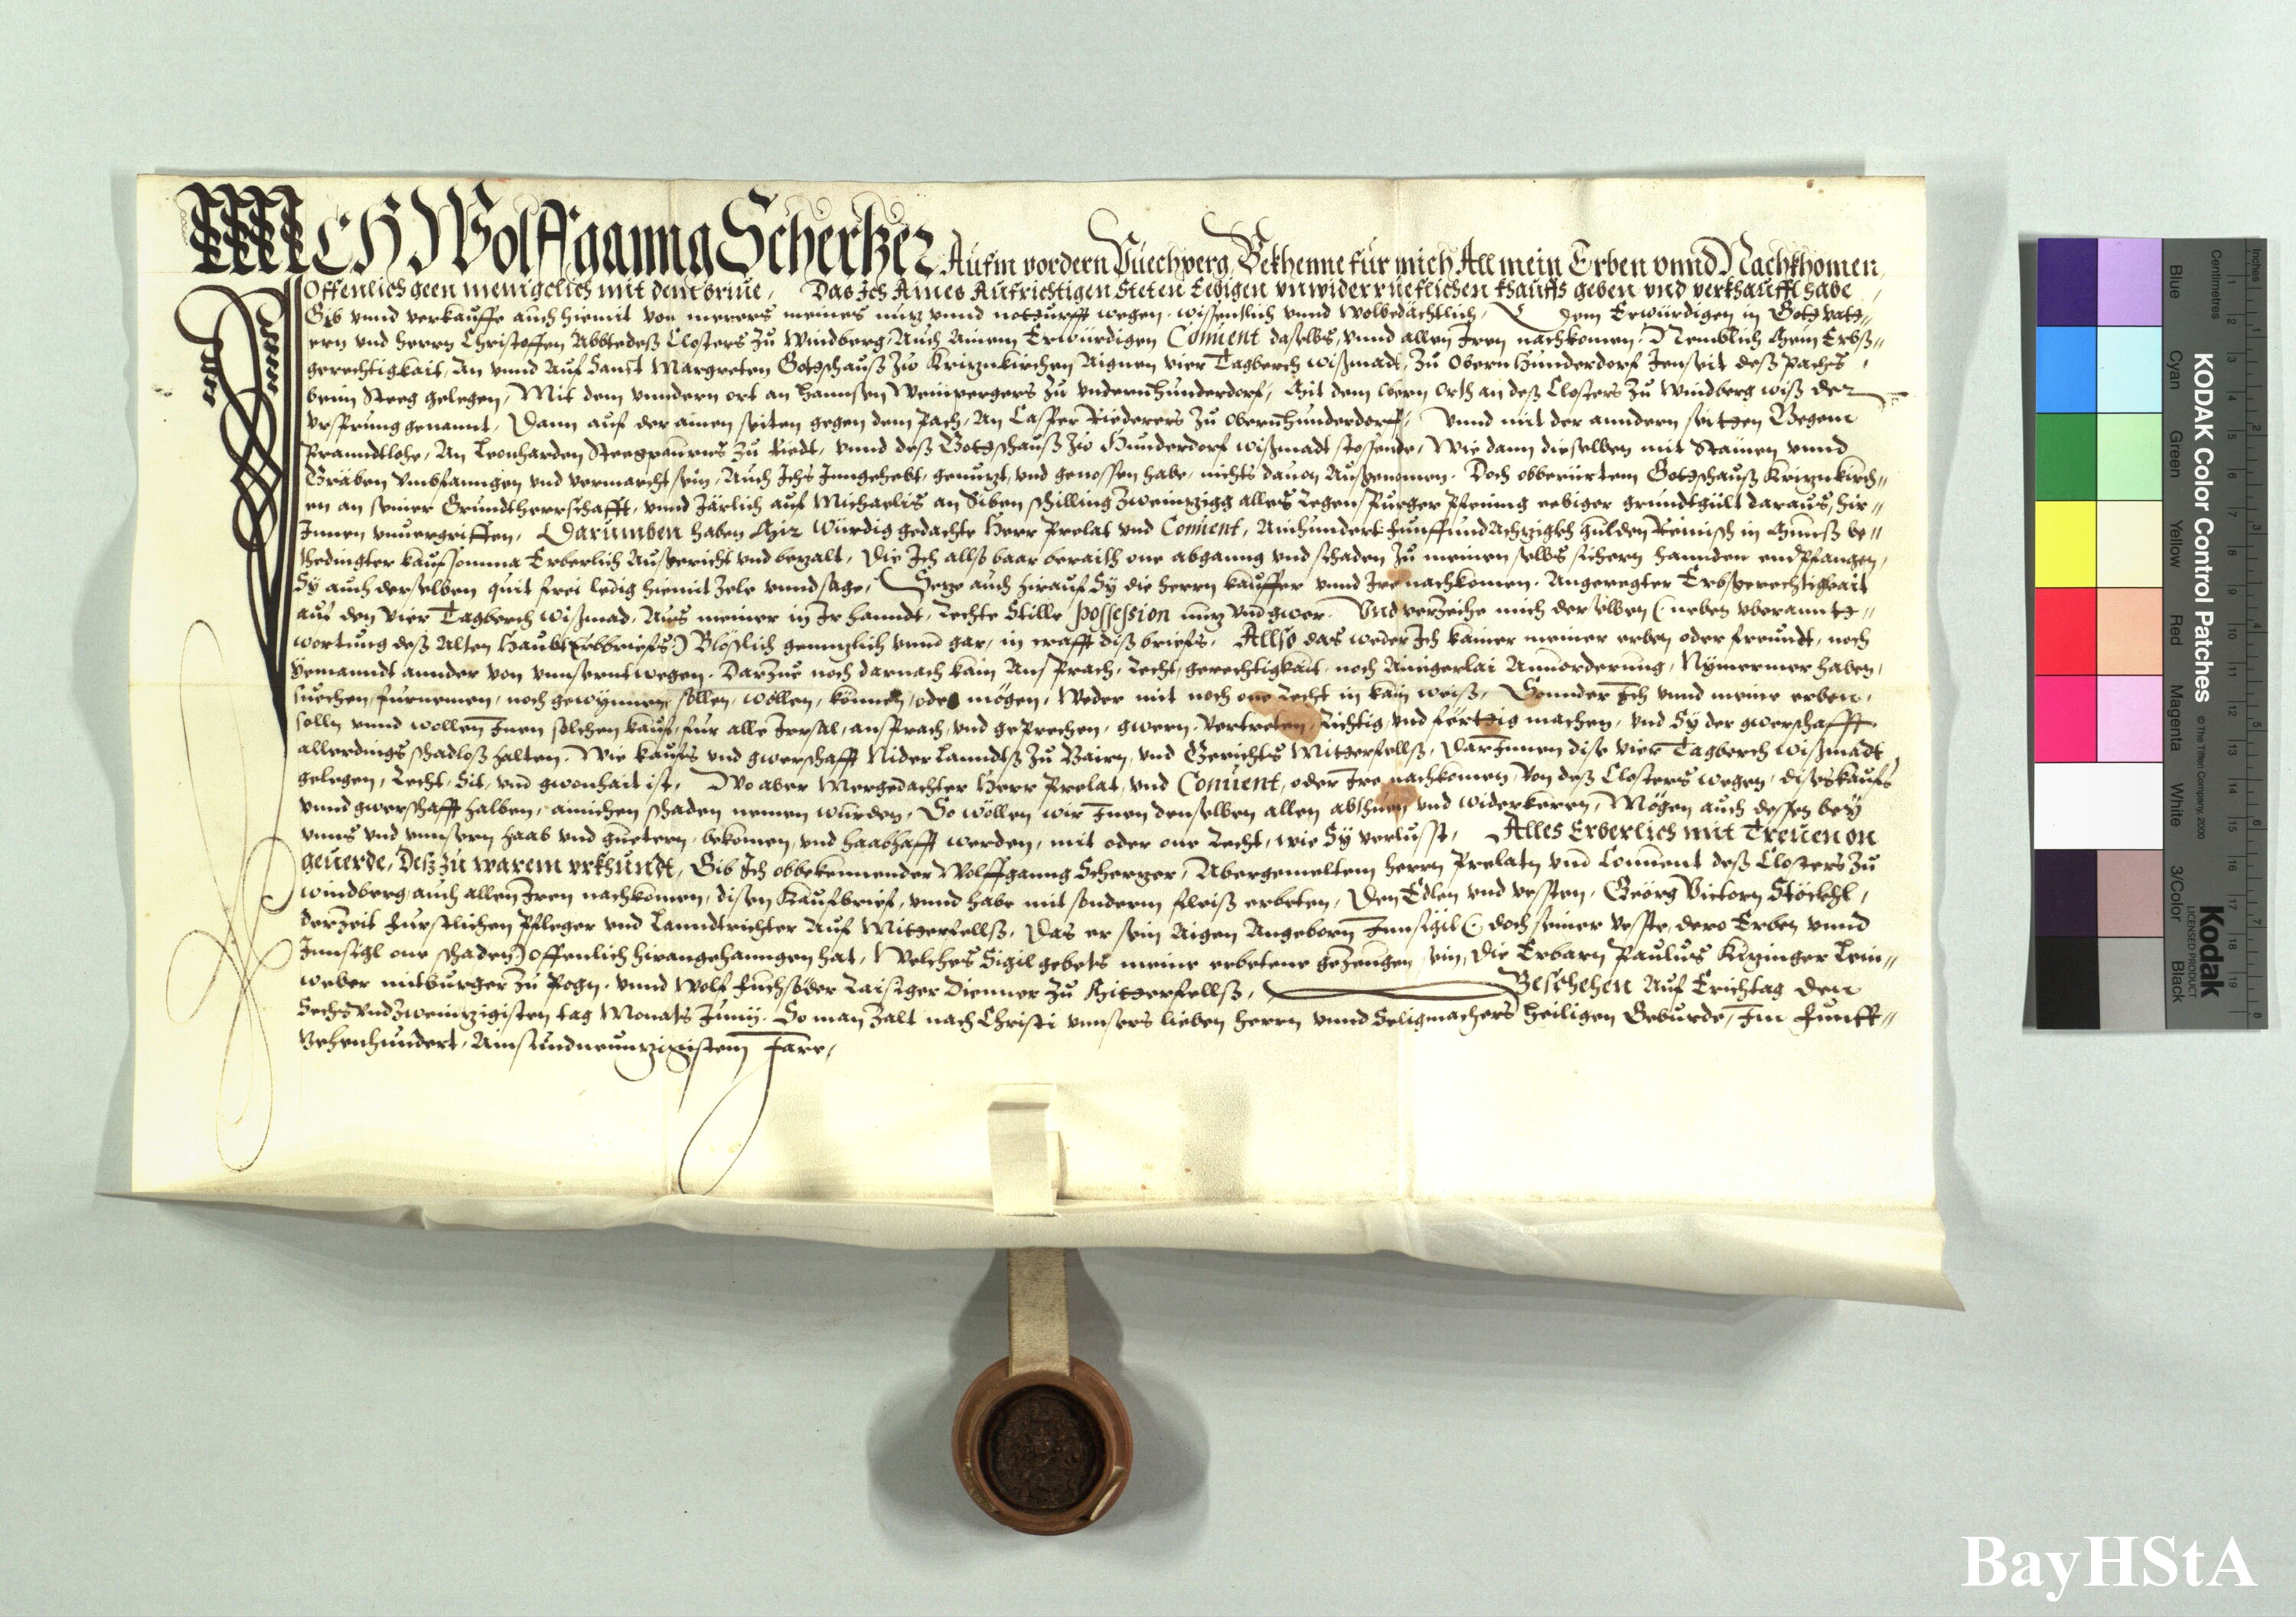 ICH Wolffganng Schertzer Aufm vordern Puechperg, Bekhenne für mich All mein Erben vnnd Nachkhomen,
Offenlich geen menigclich mit dem briue, Das Ich Aines Aufrichtigen Steten Eebigen vnwiderrueflichen Khauffs geben vnd verkhaufft habe
Gib vnnd verkauffe auch hiemit von merers meines nuz vnnd notdurfft wegen, wissentlich vnnd Wolbedächtlich, dem Erwürdigen in Gott vatt=
ern vnd herrn Christoffen Abbte deß Closters Zu Windberg, Auch Ainem Erwürdigen Conuent daselbs, vnnd allen Iren nachkomen, Nemblich Mein Erbß=
gerechtigkait, An vnnd Auf Sanct Margreten Gottshauß Zu Kreiznkirchen Aignen vier Tagwerch wißmadt, Zu Obern Hunderdorf Jenseit deß Pachs,
beim Steeg gelegen, Mit dem vnndern ort an Hannsen Weinpergers Zu vndernhunderdorf, Mit dem obern Orth an deß Closters Zu Windberg wiß der
Vrsprung genannt, Dann auf der ainen seiten gegen dem Pach, An Casper Riederers Zu Obernhunderdorff, Vnnd mit der anndern seitten Gegem
Pranndtlohe, An Leonharden Steegpaurns Zu Riedt, vnnd deß Gottshauß Zu Hunderdorf wißmadt stossende, Wie dann dieselben mit Stainen vnnd
Gräben Vmbfanngen vnd vermarcht sein, Auch Ichs Inngehebt, genuzt, vnd genossen habe, nichts dauon Außgenomen. Doch obberürtem Gottshauß Kreiznkirch=
en an seiner Grundtherrschafft, vnnd Järlich auf Michaelis an Siben schilling Zweinzigg alles Regenspurger Pfening eebiger grundtgült daraus, hir=
Innen vnuergriffen, Darumben haben Mir würdig gedachte Herr Prelat vnd Conuent, Ainhundert Funffundachzigkh gulden Reinisch in Münß be=
thedingter kaufsomma Erberlich Außgericht vnd bezalt, Die Ich allß baar beraith one abganng vnd schaden Zu meinen selbs sichern hannden emPfangen,
Sy auch derselben quit frei ledig hiemit Zele vnnd sage, Seze auch hirauf Sy die herrn kauffer vnnd Ire nachkomen, Angeregter Erbßgerechtigkait
auf den vier Tagwerch wißmad, Aus meiner in Ir hanndt, Rechte Stille possession nuz vnd gwer. Vnd verZeihe mich derselben (: neben vberanntt=
wortung deß Alten Haubt Erbbriefs:) Bloßlich gennzlich vnnd gar, in crafft diß briefs, Allso das weder Ich kainer meiner erben oder freundt, noch
yemanndt annder von vnnserntwegen. DarZue noch darnach kain AnsPrach, Recht, gerechtigkait, noch Ainigerlai Annorderung, Nymermer haben,
suechen, furnemen, noch gewynnen, sollen, wollen, konnen, oder mogen, Weder mit noch one Recht in kain weiß, Sonnder Ich vnnd meine erben,
solln vnnd wollen Inen solchen kauf, fur alle Irrsal, ansPrach, vnd gePrechen, gwern, Vertreten, Richtig, vnd fertig machen, vnd Sy der gwerschafft
allerdings schadloß halten. Wie kaufs vnd gwerschafft Nider Lanndtß Zu Bairn, vnd Gerichts Mitterfellß, Darinnen dise vier Tagwerch wißmadt,
gelegen, Recht, Sit, vnd gwonhait ist, Wo aber Mergedachter Herr Prelat, vnd Conuent, oder Ire nachkomen, Von deß Closters wegen, dises kaufs
vnnd gwerschafft halben, ainichen schaden nemen wurden, So wöllen wir Inen denselben allen abthuen vnd widerkeren, Mögen auch dessen bey
vnns vnd vnnsern haab vnd guetern, bekomen, vnd haabhafft werden, mit oder one Recht, wie Sy verlusst, Alles Erberlich mit Treuen on
geuerde, Deß zu warem vrkhundt, Gib Ich obbekennender Wolffganng Scherzer, Abergemeltem herrn Prelatn vnd Conuent deß Closters Zu
windberg, auch allen Iren nachkomen, disen Kaufbrief, vnnd habe mit sonderm fleiß erbeten, Den Edlen vnd vessten, Georg Victorn Stöckhl,
derZeit Furstlichen Pfleger vnd Lanndtrichter Auf Mitterfellß, Das er sein Aigen Angeborn Innsigil (: doch seiner vesste, dero Erben vnnd
Innsigl one schaden:) offenlich hirangehanngen hat, Welches Sigil gebets meine erbetene geZeugen sein, Die Erbarn Paulus Kizinger Lein=
weber mitburger Zu Pogn. vnnd Wolf Fuchsöder Raisiger Dienner Zu Mitterfellß, Beschehen Auf Erichtag den
SechsvndZweinzigisten tag Monats Junij. So man Zalt nach Christi vnnsers lieben herrn vnnd Seligmachers heiligen Geburde, Im Funff=
Zehenhundert, Ainsundneunzigistem Jare,
KODAK Color Control Patches
© The Tiffen Company, 2000
Kodak
LICENSED PRODUCT
Blue
Cyan
Green
Yellow
Red
Magenta
White
3/Color
Black
Inches
Centimetres
BayHStA